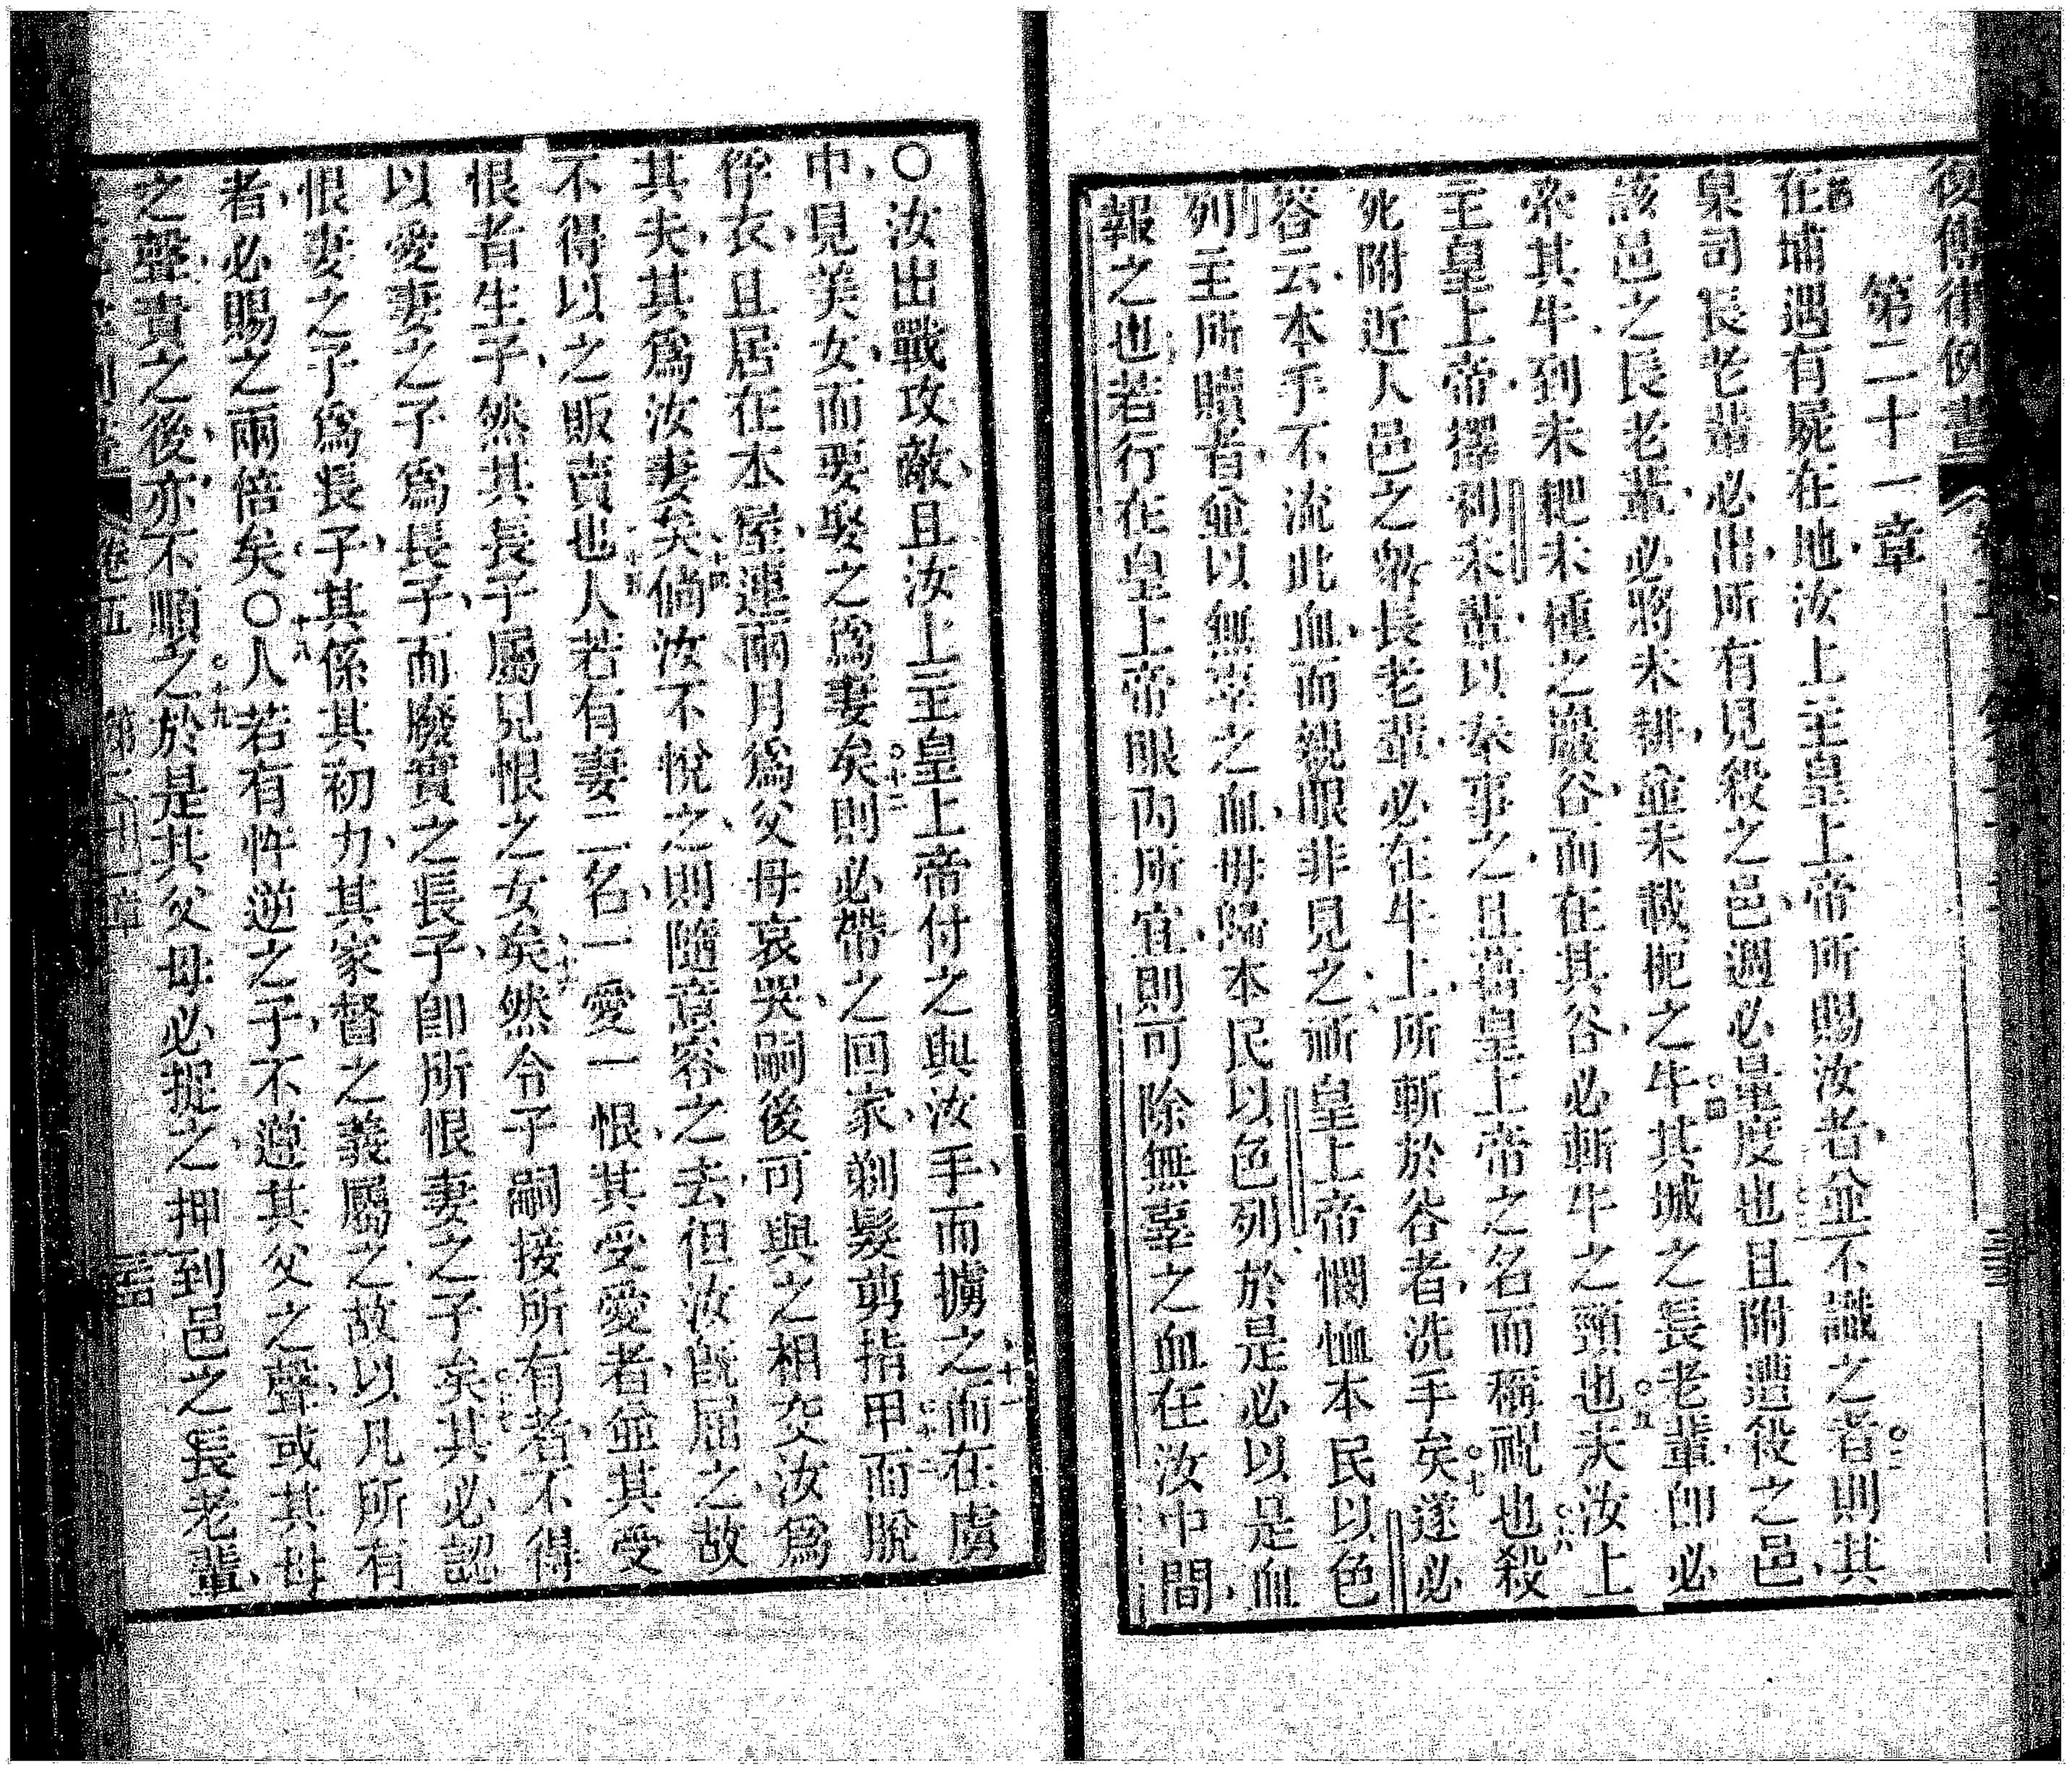 後傳律例書
第二十一章
在埔遇有屍在地、汝上主皇上帝所賜汝者、並不識之者、則其
臬司長老輩必出、所有見殺之邑、週必量度也、且附遭殺之邑、
該邑之長老輩、必將未耕、並未載軛之牛、其城之長老輩、即必
牽其牛到未耙未種之巖谷、而在其谷、必斬牛之頸也、夫汝上
主皇上帝、擇利未輩、以奉事之、且當皇上帝之名而稱祝也、殺
死附近人邑之衆長老輩、必在牛上、所斬於谷者、洗手矣、遂必
答云、本手不流此血、而親眼非見之、祈皇上帝憫恤本民以色
列、主所贖者、並以無辜之血、毋歸本民以色列、於是必以是血
報之也、若行在皇上帝眼內所宜、則可除無辜之血在汝中間、
〇汝出戰攻敵、且汝上主皇上帝付之與汝手、而擄之、而在虜
中、見美女、而要娶之爲妻矣、則必帶之回家、剃髮剪指甲、而脫
俘衣、且居在本屋、連兩月爲父母哀哭、嗣後可與之相交、汝爲
其夫、其爲汝妻矣、倘汝不悅之、則隨意容之去、但汝旣屈之、故
不得以之販賣也、人若有妻二名、一愛一恨、其受愛者、並其受
恨者生子、然其長子屬見恨之女矣、然令子嗣接所有者、不得
以愛妻之子爲長子、而廢實之長子、卽所恨妻之子矣、其必認
恨妻之子爲長子、其係其初力、其家督之義屬之、故以凡所有
者、必賜之兩倍矣〇人若有忤逆之子、不遵其父之聲、或其母
之聲、責之後、亦不順之、於是其父母必捉之、押到邑之長老輩、
卷五 第二十一章